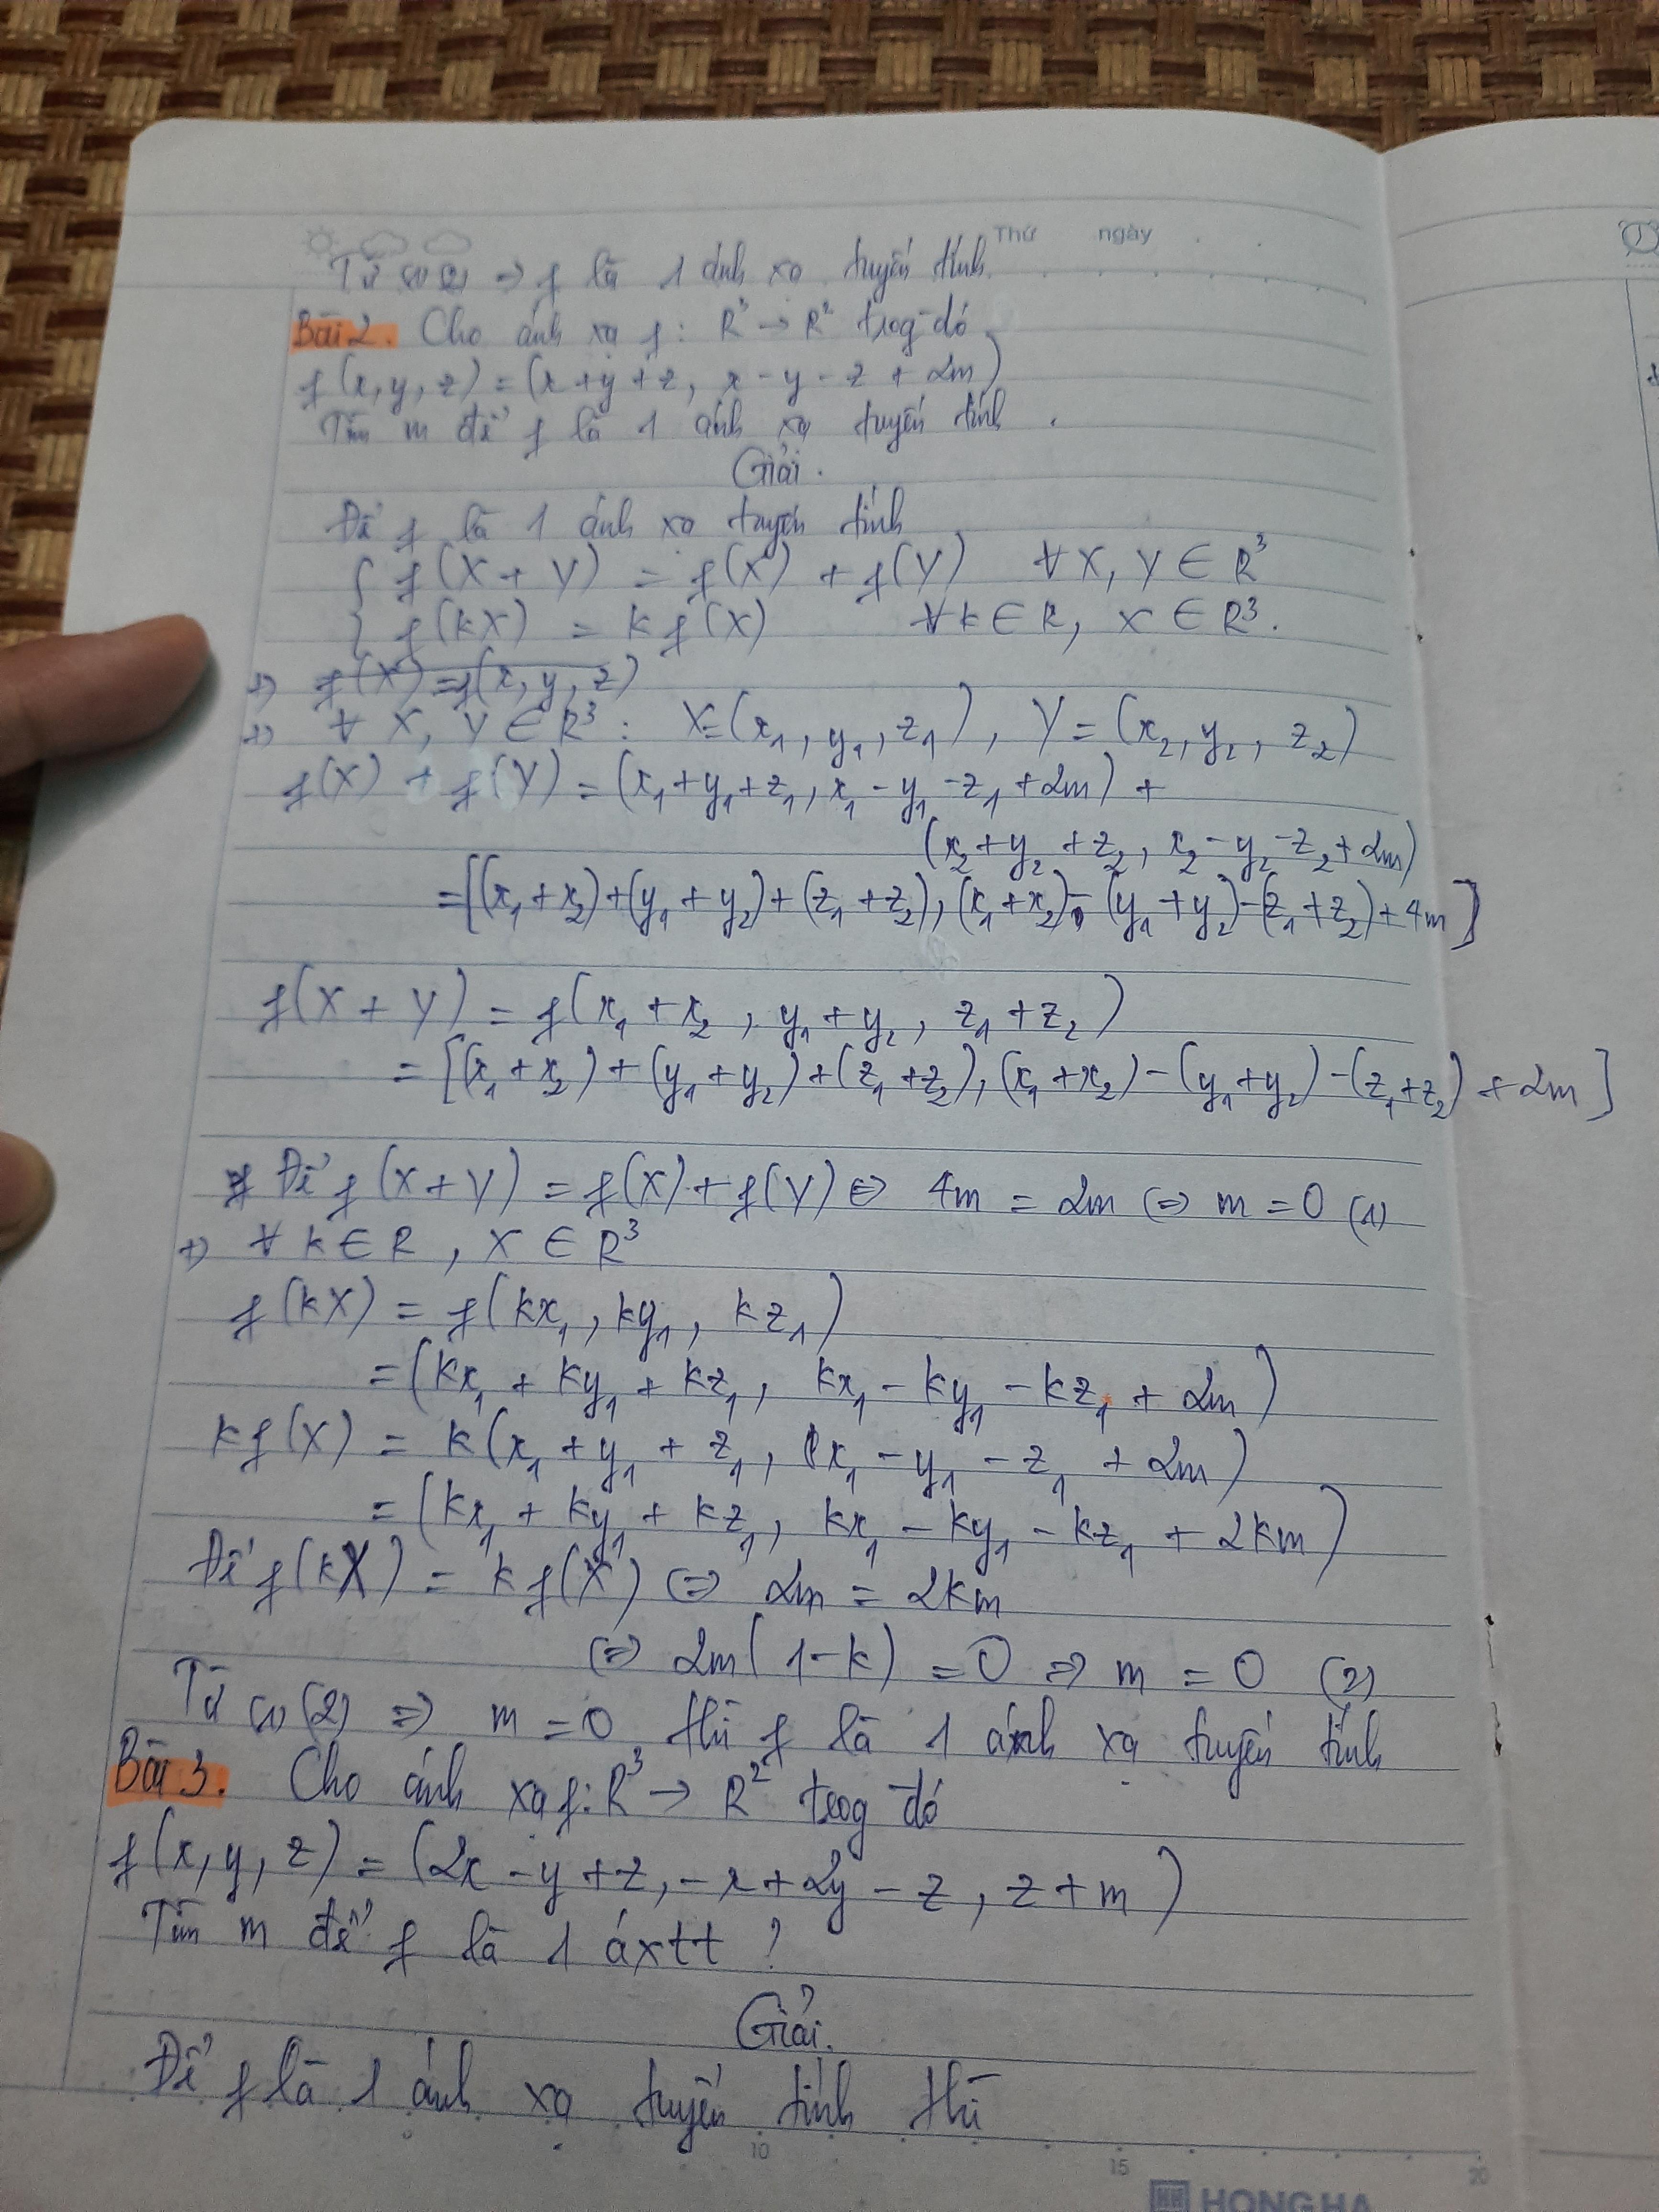 Thứ ngày
Từ (1) (2) => f là 1 ánh xạ tuyến tính.
Bài 2. Cho ánh xạ f: R³ → R² trog đó
f(x, y, z) = (x + y + z, x - y - z + 2m)
Tìm m để f là 1 ánh xạ tuyến tính.
Giải.
Để f là 1 ánh xạ tuyến tính
{ f(X + Y) = f(X) + f(Y) ∀ X, Y ∈ R³
f(kX) = k f(X) ∀ k ∈ R, X ∈ R³.
+) f(X) = f(x, y, z)
+) ∀ X, Y ∈ R³ : X = (x₁, y₁, z₁), Y = (x₂, y₂, z₂)
f(X) + f(Y) = (x₁ + y₁ + z₁, x₁ - y₁ - z₁ + 2m) +
(x₂ + y₂ + z₂, x₂ - y₂ - z₂ + 2m)
= [(x₁ + x₂) + (y₁ + y₂) + (z₁ + z₂), (x₁ + x₂) - (y₁ + y₂) - (z₁ + z₂) + 4m]
f(X + Y) = f(x₁ + x₂, y₁ + y₂, z₁ + z₂)
= [(x₁ + x₂) + (y₁ + y₂) + (z₁ + z₂), (x₁ + x₂) - (y₁ + y₂) - (z₁ + z₂) + 2m]
Để f(X + Y) = f(X) + f(Y) <=> 4m = 2m <=> m = 0 (1)
+) ∀ k ∈ R, X ∈ R³
f(kX) = f(kx₁, ky₁, kz₁)
= (kx₁ + ky₁ + kz₁, kx₁ - ky₁ - kz₁ + 2m)
kf(X) = k(x₁ + y₁ + z₁, x₁ - y₁ - z₁ + 2m)
= (kx₁ + ky₁ + kz₁, kx₁ - ky₁ - kz₁ + 2km)
Để f(kX) = k f(X) <=> 2m = 2km
<=> 2m(1 - k) = 0 => m = 0 (2)
Từ (1) (2) => m = 0 thì f là 1 ánh xạ tuyến tính
Bài 3. Cho ánh xạ f: R³ → R² trog đó
f(x, y, z) = (2x - y + z, -x + 2y - z, z + m)
Tìm m để f là 1 áxtt ?
Giải.
Để f là 1 ánh xạ tuyến tính thì
10 15 20
HONG HA